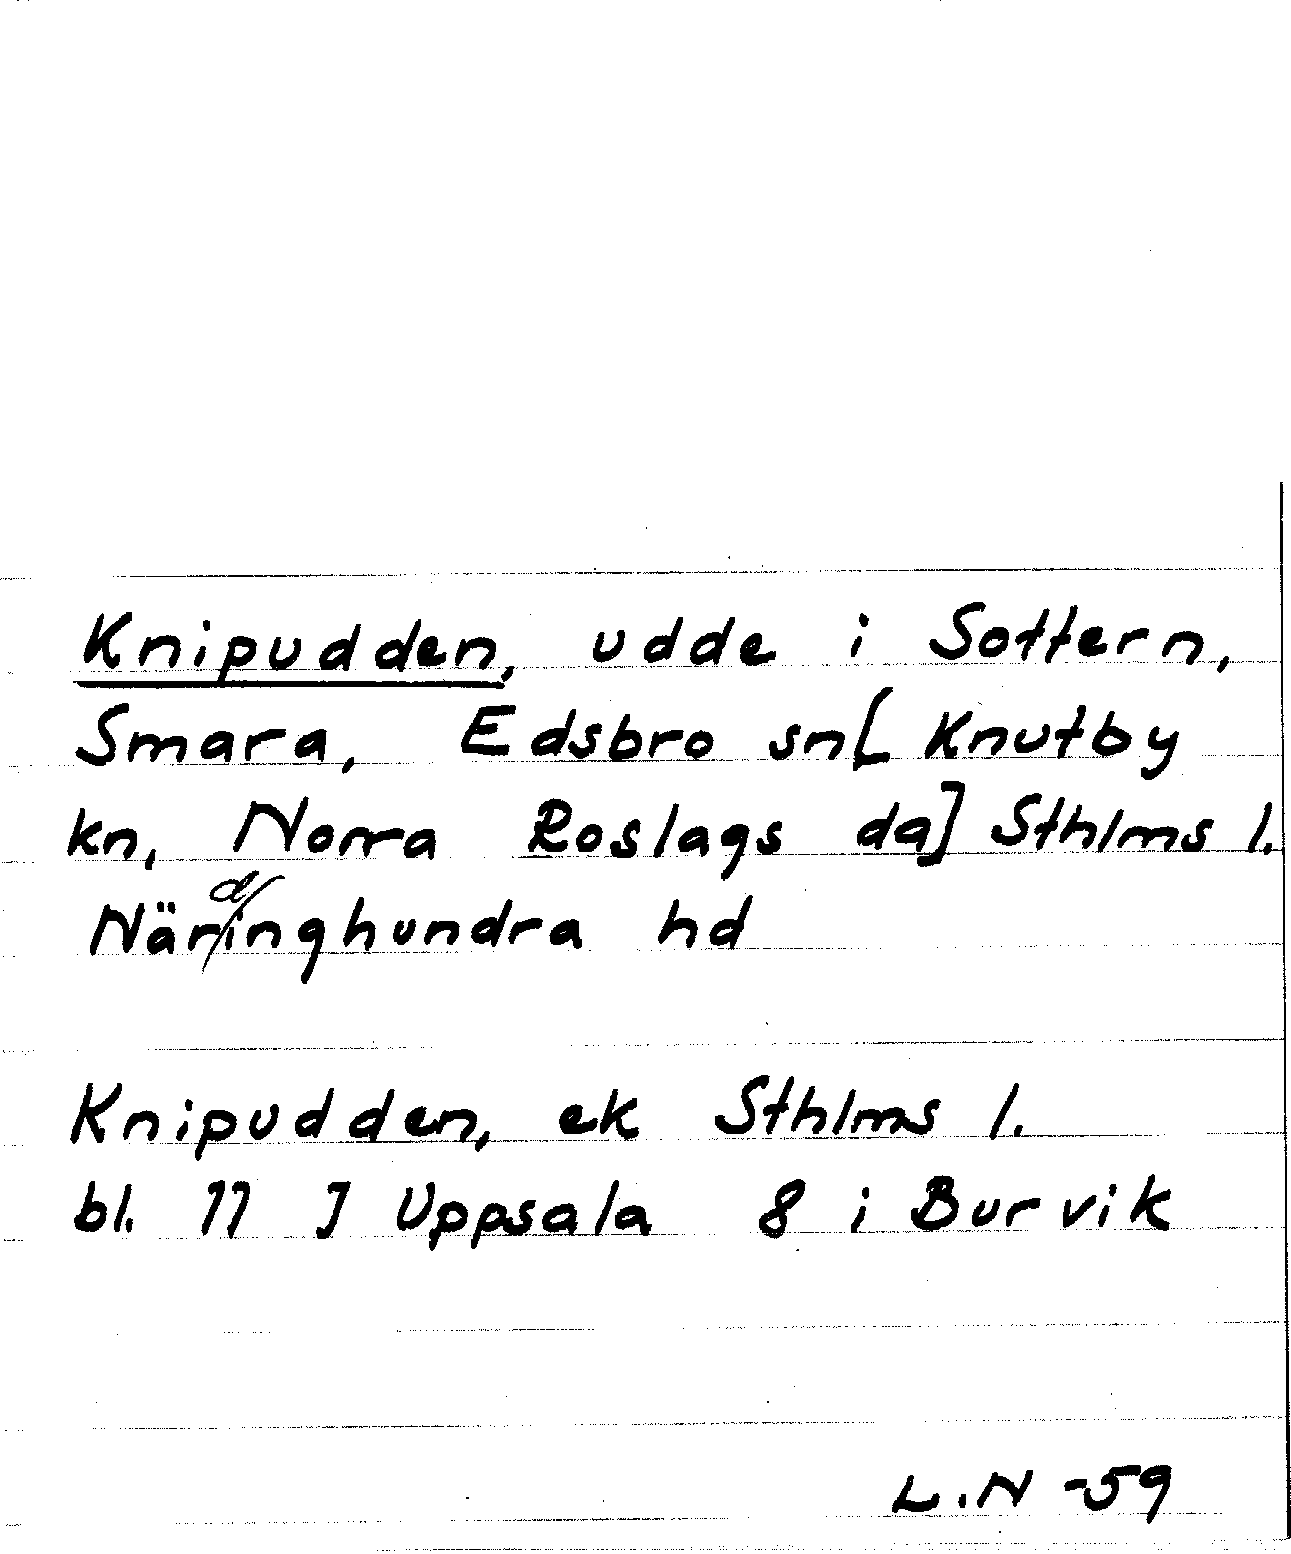 Knipudden, udde i Sottern,
Smara, Edsbro sn [Knutby
kn, Norra Roslags da] Sthlms l.
Närdinghundra hd
Knipudden, ek Sthlms l.
bl. 11 J Uppsala 8 i Burvik
L.N -59